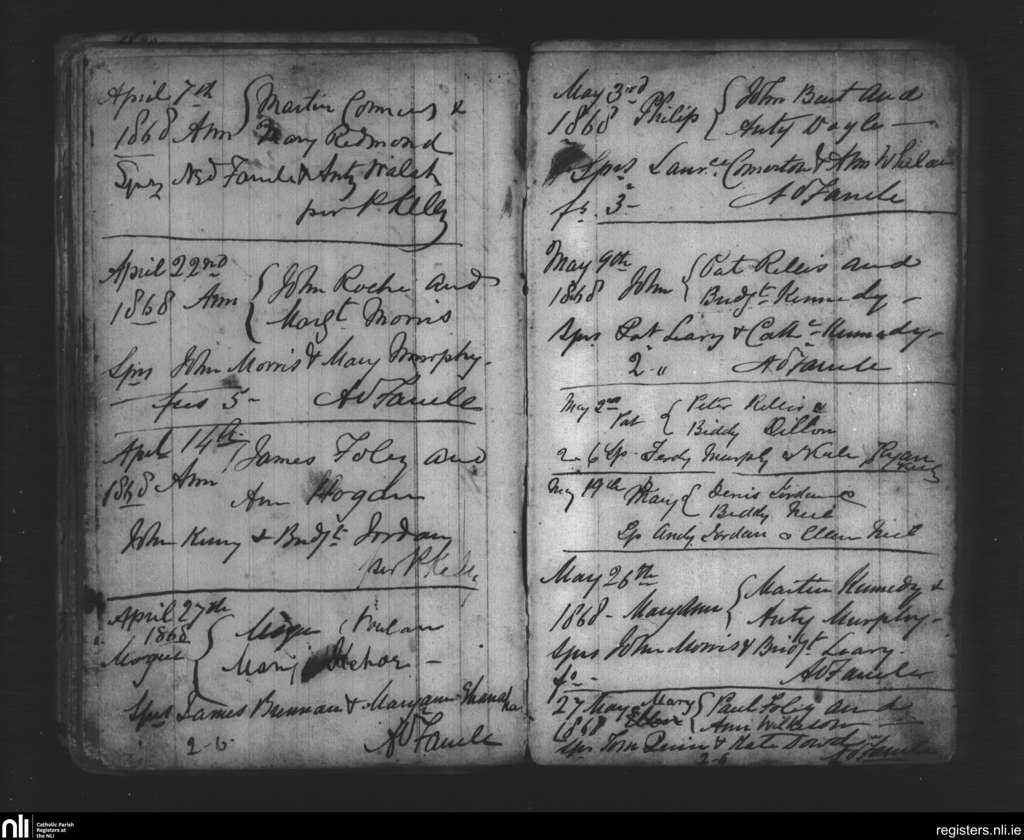 April 7th
1868 Ann { Martin Connors &
Mary Redmond
Sprs Ned Fardle & Anty Walsh
per P Kelly
April 22nd
1868 Ann { John Roche and
Margt Morris
Sprs John Morris & Mary Murphy.
fees 5-
April 14th
1868 Ann { James Foley and
Ann Hogan
John Kenny & Bridgt Jordan
per P Kelly
April 27th
1868
Mogue { Mogue
Mary Kehoe -
Sprs James Brennan & Maryann
2-6
May 3rd
1868 Philip { John Bent and
Anty Doyle -
Sprs Laurce Comerton & Ann Whelan
fs. 3-
May 9th
1868 John { Pat Rellis and
Bridgt Kennedy -
Sprs Pat Leary & Cathe Kennedy -
2-"
May 2nd
Pat { Peter Rellis &
Biddy Dillon
2-6 Sp. Ferdy Murphy & Kate Ryan
May 19th Mary { Denis Jordan &
Biddy Neil
Sp Andy Jordan & Ellen Neil
May 26th
1868- MaryAnn { Martin Kennedy &
Anty Murphy -
Sprs John Morris & Bridgt Leary.
fs -
27 May Mary { Paul Foley and
1868 Ann Wilkinson
Sprs Tom Quinn & Kate Dowd
2-6
nli
Catholic Parish
Registers at
the NLI
registers.nli.ie